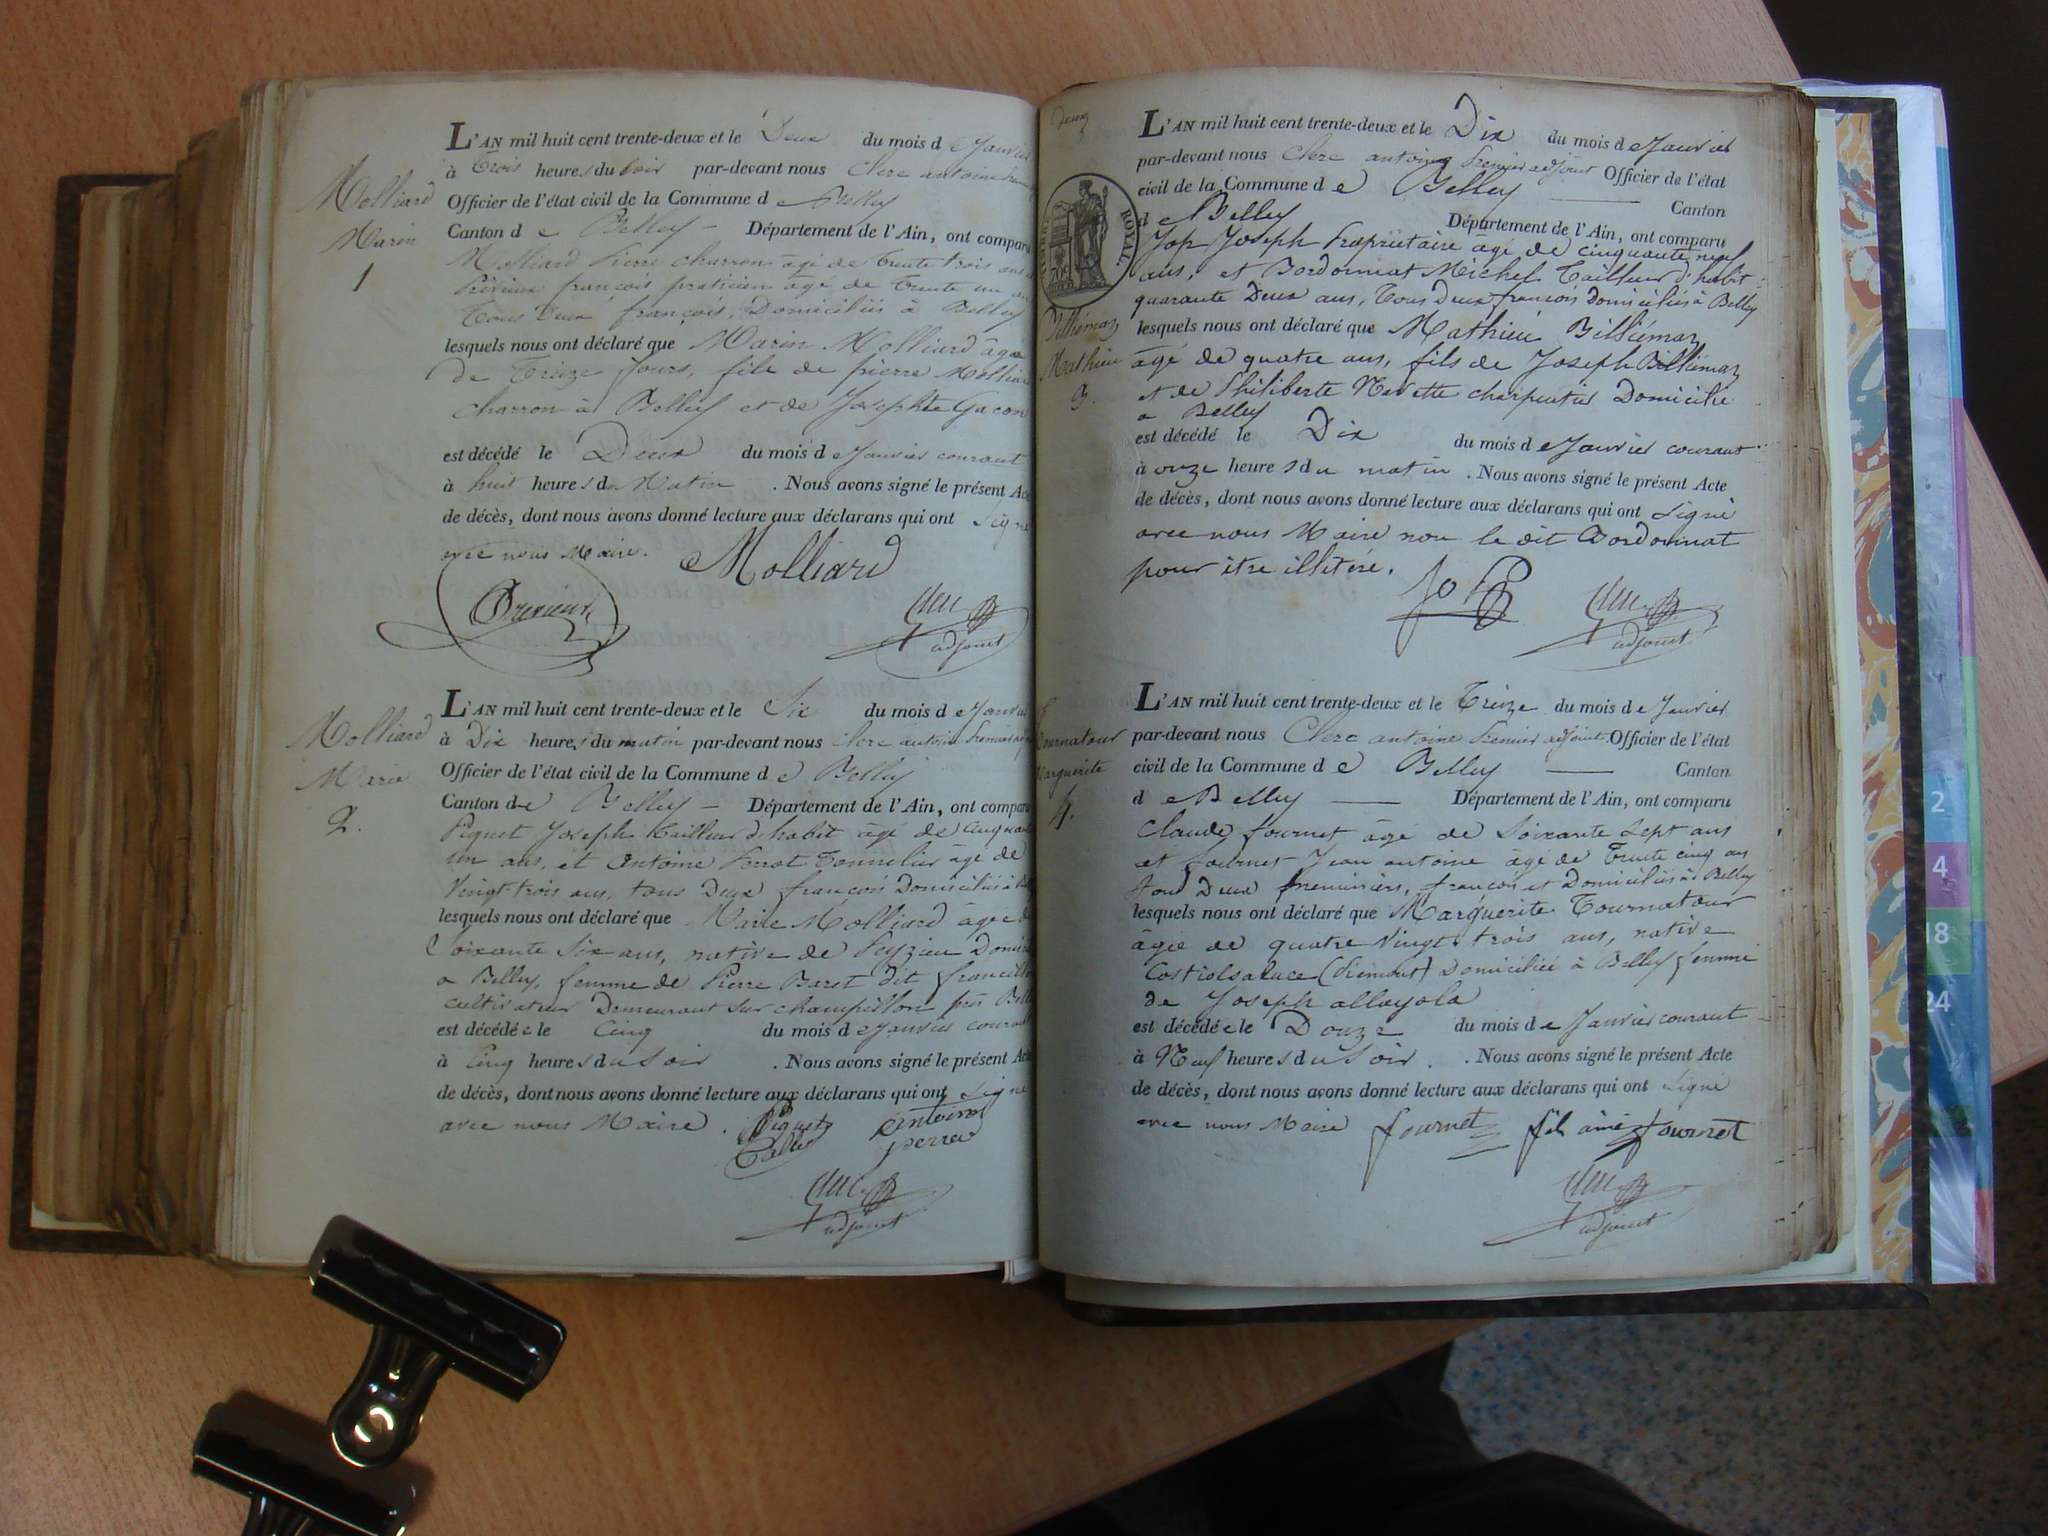 Molliard
Marin
1
L'AN mil huit cent trente-deux et le Deux du mois de Janvier
à Trois heures du soir par-devant nous Clerc antoine
Officier de l'état civil de la Commune de Belley
Canton de Belley — Département de l'Ain, ont comparu
Molliard Pierre charron âgé de trente trois ans
françois praticien âgé de trente un
Tous Deux françois, Domiciliés à Belley
lesquels nous ont déclaré que Marin Molliard âgé
de Treize Jours, fils de pierre Molliard
charron à Belley et de Josephte Gacon
est décédé le Deux du mois de Janvier courant
à huit heures du Matin . Nous avons signé le présent Acte
de décès, dont nous avons donné lecture aux déclarans qui ont signé
avec nous Maire.
Molliard
Clerc
adjoint
Molliard
Marie
2.
L'AN mil huit cent trente-deux et le Six du mois de Janvier
à Dix heures du matin par-devant nous Clerc antoine Premier
Officier de l'état civil de la Commune de Belley
Canton de Belley — Département de l'Ain, ont comparu
Piquet Joseph tailleur d'habit âgé de cinquante
un ans, et Antoine Perrot Tonnelier âgé de
Vingt trois ans, tous Deux françois Domiciliés à
lesquels nous ont déclaré que Marie Molliard âgée de
Soixante Six ans, native de Peyzieu
a Belley, femme de Pierre Baret dit
cultivateur Demeurant sur champillon près
est décédée le Cinq du mois de Janvier courant
à Cinq heures du Soir . Nous avons signé le présent Acte
de décès, dont nous avons donné lecture aux déclarans qui ont Signé
avec nous Maire.
Piquet
antoine
perret
Clerc
adjoint
deux
ROYAL
L'AN mil huit cent trente-deux et le Dix du mois de Janvier
par-devant nous Clerc antoine Premier adjoint Officier de l'état
civil de la Commune de Belley — Canton
de Belley Département de l'Ain, ont comparu
Jop Joseph Propriétaire âgé de cinquante neuf
ans, et Bordonnat Michel Tailleur d'habit
quarante Deux ans, Tous Deux françois domiciliés à Belley
Billiémaz
Mathieu
3.
lesquels nous ont déclaré que Mathieu Billiémaz
âgé de quatre ans, fils de Joseph Billiémaz
et de Philiberte Navette charpentier Domicilié
a Belley
est décédé le Dix du mois de Janvier courant
à onze heures du matin . Nous avons signé le présent Acte
de décès, dont nous avons donné lecture aux déclarans qui ont Signé
avec nous Maire non le dit Bordonnat
pour être illitéré.
Jop
Clerc
adjoint
Tournatour
Marguerite
4.
L'AN mil huit cent trente-deux et le Treize du mois de Janvier
par-devant nous Clerc antoine Premier adjoint Officier de l'état
civil de la Commune de Belley — Canton
de Belley — Département de l'Ain, ont comparu
Claude fournet âgé de Soixante Sept ans
et fournet Jean antoine âgé de Trente cinq ans
tous Deux françois et Domiciliés à Belley
lesquels nous ont déclaré que Marguerite Tournatour
âgée de quatre Vingt trois ans, native
Costiolsaluce (Piémont) Domiciliée à Belley femme
de Joseph allayola
est décédée le Douze du mois de Janvier courant
à Neuf heures du Soir . Nous avons signé le présent Acte
de décès, dont nous avons donné lecture aux déclarans qui ont Signé
avec nous Maire fournet fils ainé fournet
Clerc
adjoint
2
4
18
24